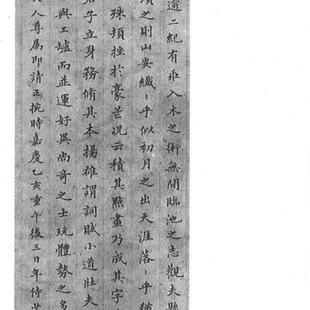 逾二紀有乖入木之術無間臨池之志觀夫懸
之則山安纖〻乎似初月之出天涯落〻乎猶
殊頓挫於豪芒況云積其點畫乃成其字
君子立身務脩其本揚雄謂詞賦小道壯夫
與工罏而並運好異尚奇之士玩體勢之多
人尊屬即請正捥時嘉慶乙亥重午後三日年侍